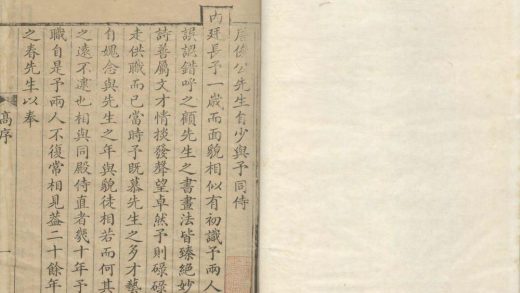 唐儀公先生自少與予同侍
内廷長予一歲而面貌相似有初識予兩人
誤認錯呼之顧先生之書畫法皆臻絕妙
詩善屬文才情掞發聲望卓然予則碌碌
走供職而已當時予既慕先生之多才藝
自媿念與先生之年與貌徒相若而何其
之遠不逮也相與同殿侍直者幾十年予
職自是予兩人不復常相見葢二十餘年
之眷先生以奉
高序
一